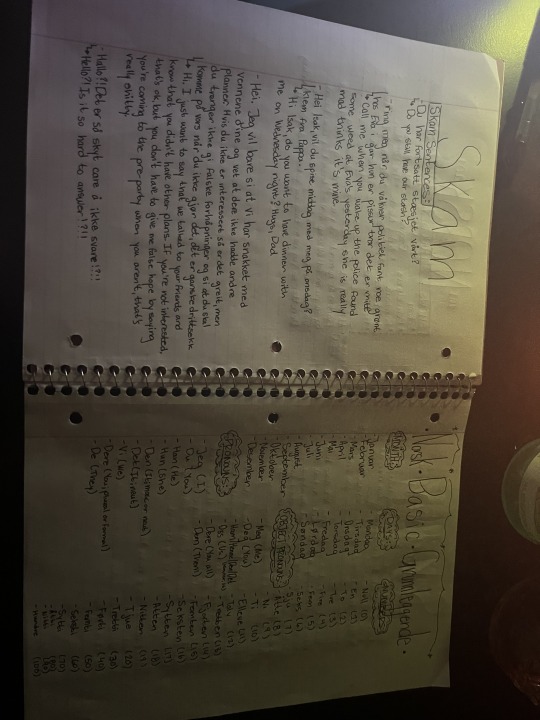 Skam
Skam Sentences:
- Du har fortsatt stæsjet vårt?
↳ Do you still have our stash?
- ring meg når du våkner politiet fant noe greie
hos Eva, går hun er pissur tror det er mitt
↳ Call me when you wake up the police found
some weed at Eva's yesterday she is really
mad thinks it's mine
- Hei Isak, vil du spise middag med meg på onsdag?
klem fra Pappa.
↳ Hi Isak, do you want to have dinner with
me on Wednesday night? Hugs, Dad
- Hei. Jag vil bare si at vi har snakket med
vennene dine og vet at dere ikke hadde andre
planer. Hvis du ikke er interessert så er det greit, men
du trenger ikke gi falske forhåpninger og si at du skal
komme på vors når du ikke gjør det. det er ganske drittsekk
↳ Hi. I just want to say that we talked to your friends and
know that you didn't have other plans. If you're not interested,
that's ok but you don't have to give me false hope by saying
you're coming to the pre-party when you aren't, that's
really shitty.
- Hallo?! Det er så skyt care å ikke svare!?!!
↳ Hello?! Is it so hard to answer!?!!
Norsk · Basic · Grunnleggende
Months
- Januar
- Februar
- Mars
- April
- Mai
- Juni
- Juli
- August
- September
- Oktober
- November
- Desember
Days
- Mandag
- Tirsdag
- Onsdag
- Torsdag
- Fredag
- Lørdag
- Søndag
Numbers
- Null (0)
- En (1)
- To (2)
- Tre (3)
- Fire (4)
- Fem (5)
- Seks (6)
- Sju (7)
- Åtte (8)
- Ni (9)
- Ti (10)
- Elleve (11)
- Tolv (12)
- Tretten (13)
- Fjorten (14)
- Femten (15)
- Seksten (16)
- Sytten (17)
- Atten (18)
- Nitten (19)
- Tjue (20)
- Tretti (30)
- Førti (40)
- Femti (50)
- Seksti (60)
- Sytti (70)
- Åtti (80)
- Hundre (100)
Pronouns
- Jeg (I)
- Du (You)
- Han (He)
- Hun (She)
- Den (It, masc or fem)
- Det (It, neut)
- Vi (We)
- Dere (You, plural or formal)
- De (They)
Object Pronouns
- Meg (Me)
- Deg (You)
- Oss (Us)
- Dere (You all)
- Dem (Them)